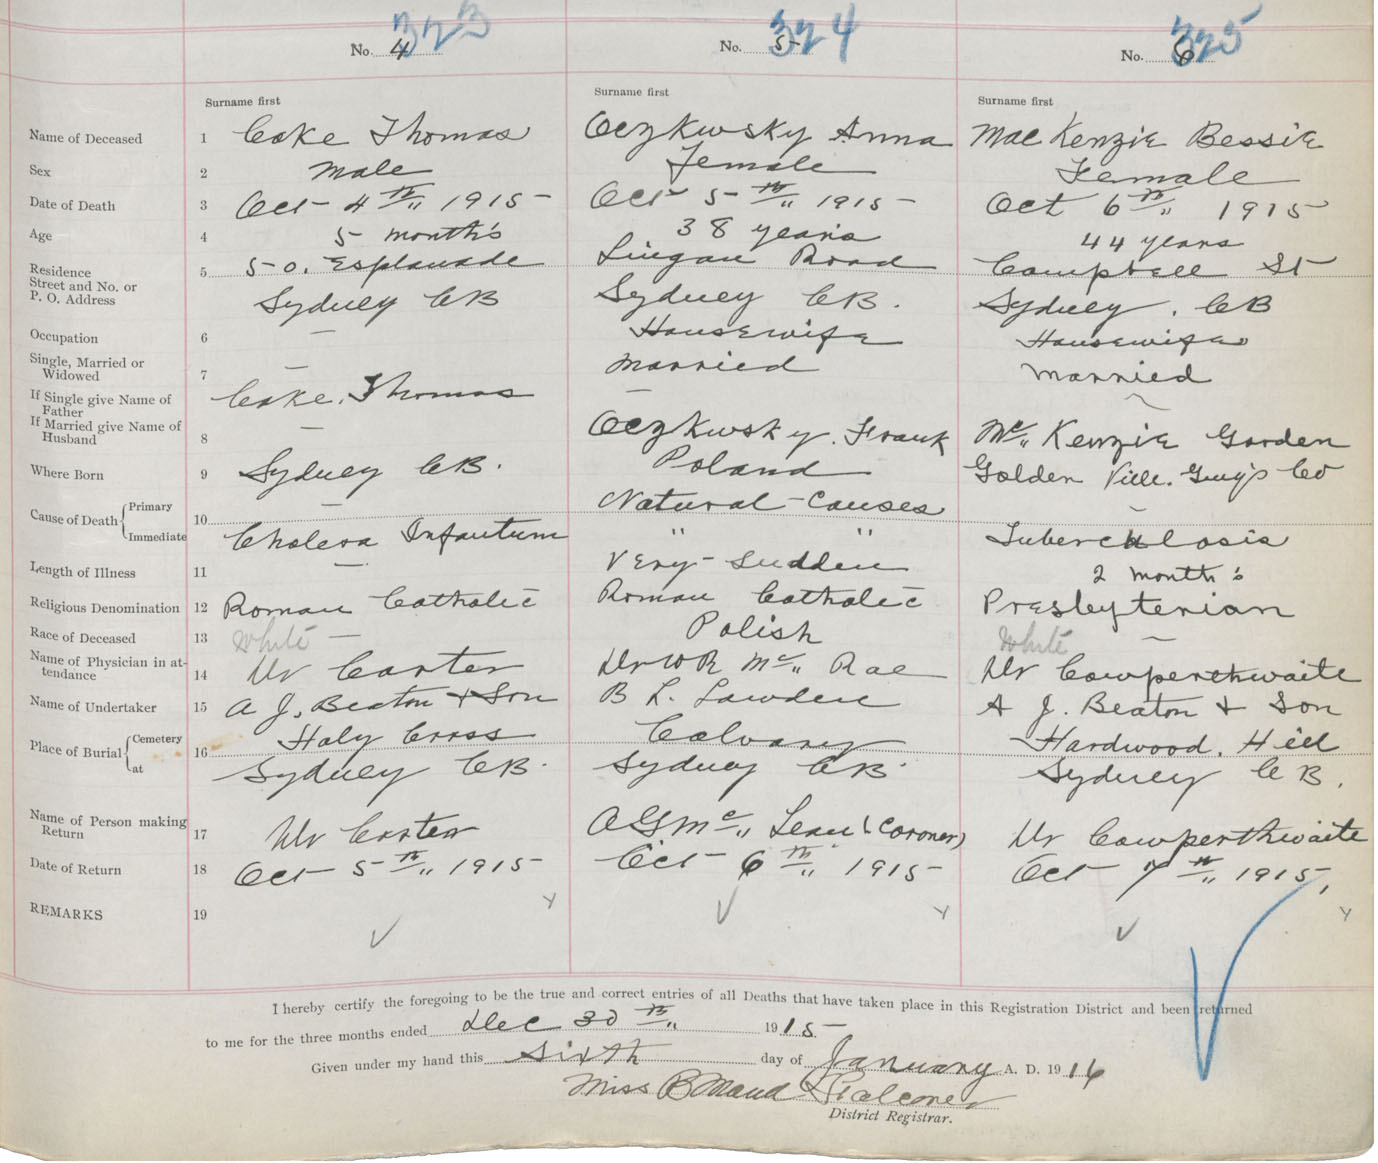 323 324 325
No. 4 No. 5 No. 6
Surname first Surname first Surname first
Name of Deceased 1 Coke Thomas Oczkwsky Anna Mac Kenzie Bessie
Sex 2 Male Female Female
Date of Death 3 Oct 4th 1915 Oct 5th 1915 Oct 6th 1915
Age 4 5 month's 38 years 44 years
Residence Street and No. or P. O. Address 5 50. Esplanade Lingan Road Campbell St
Sydney CB Sydney CB. Sydney. CB
Occupation 6 — Housewife Housewife
Single, Married or Widowed 7 — Married Married
If Single give Name of Father Coke. Thomas — ~
If Married give Name of Husband 8 — Oczkwsky. Frank Mc Kenzie Gorden
Where Born 9 Sydney CB. Poland Golden Ville. Guy's Co
Cause of Death { Primary 10 — Natural Causes ~
Immediate Cholera Infantum " " Tuberculosis
Length of Illness 11 — Very Sudden 2 month's
Religious Denomination 12 Roman Catholic Roman Catholic Presbyterian
Race of Deceased 13 White — Polish White ~
Name of Physician in attendance 14 Dr Carter Dr W R Mc Rae Dr Cowperthwaite
Name of Undertaker 15 A J. Beaton & Son B L. Lowden A J. Beaton & Son
Place of Burial { Cemetery 16 Holy Cross Calvary Hardwood. Hill
at Sydney CB. Sydney CB. Sydney CB.
Name of Person making Return 17 Dr Carter A G Mc Lean (Coroner) Dr Cowperthwaite
Date of Return 18 Oct 5th 1915 Oct 6th 1915 Oct 7th 1915,
REMARKS 19
I hereby certify the foregoing to be the true and correct entries of all Deaths that have taken place in this Registration District and been returned
to me for the three months ended Dec 30th 1915
Given under my hand this Sixth day of January A. D. 1916
Miss B Maud Falconer
District Registrar.